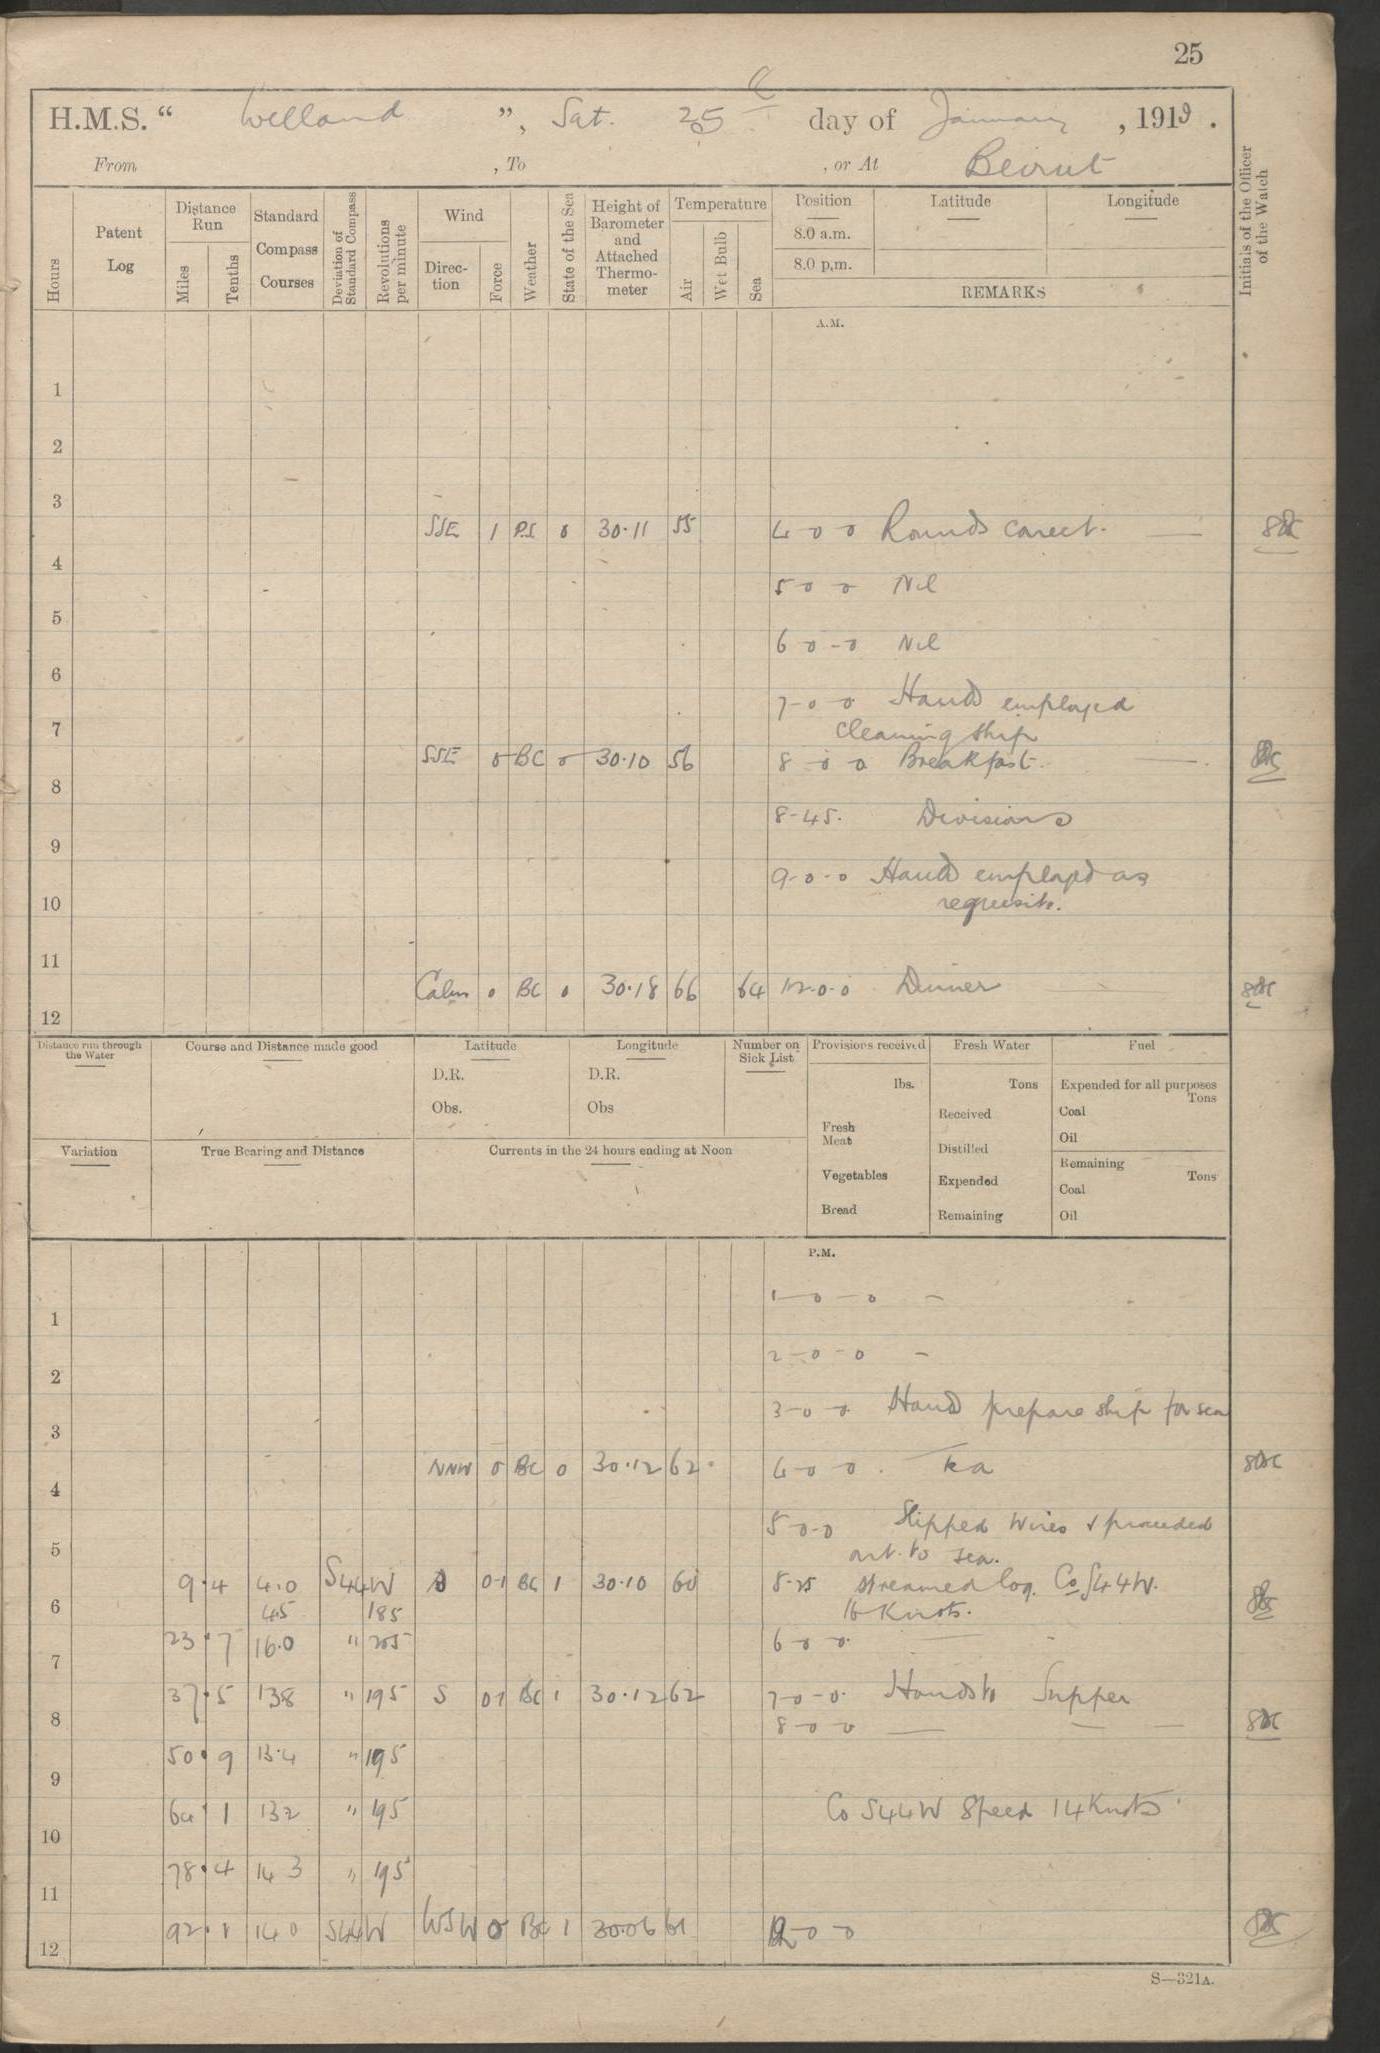 25
H.M.S. “ Welland ”, Sat. 25 day of January, 1919.
From , To , or At Beirut
Hours
Patent Log
Distance Run
Miles
Tenths
Standard Compass Courses
Deviation of Standard Compass
Revolutions per minute
Wind
Direction
Force
Weather
State of the Sea
Height of Barometer and Attached Thermometer
Temperature
Air
Wet Bulb
Sea
Position
8.0 a.m.
8.0 p.m.
Latitude
Longitude
REMARKS
Initials of the Officer of the Watch
A.M.
1
2
3
SSE 1 0 30.11 55 4-0-0 Rounds corect.
4
5-0-0 Nil
5
6-0-0 Nil
6
7-0-0 Hands employed
7
cleaning ship
SSE 0 BC 0 30.10 56 8-0-0 Breakfast.
8
8-45. Divisions
9
9-0-0 Hands employed as
10 requisite.
11
Calm 0 BC 0 30.18 66 64 12-0-0 Dinner
12
Distance run through the Water
Course and Distance made good
Latitude
D.R.
Obs.
Longitude
D.R.
Obs
Number on Sick List
Provisions received
lbs.
Fresh Meat
Vegetables
Bread
Fresh Water
Tons
Received
Distilled
Expended
Remaining
Fuel
Expended for all purposes
Tons
Coal
Oil
Remaining
Tons
Coal
Oil
Variation
True Bearing and Distance
Currents in the 24 hours ending at Noon
P.M.
1-0-0 -
1
2-0-0 -
2
3-0-0 Hands prepare ship for sea
3
NNW 0 BC 0 30.12 62 4-0-0. Tea
4
5-0-0 Slipped wires & proceeded
5
out to sea.
9.4 4.0 S44W 0-1 BC 1 30.10 60 streamed log. Co S44W.
6 45 185 16 Knots.
23.7 16.0 " 205 6-0-0
7
37.5 138 " 195 S 01 BC 1 30.12 62 7-0-0. Hands to Supper
8 8-0-0
50.9 13.4 " 195
9
64.1 132 " 195 Co S44W Speed 14 Knots
10
78.4 143 " 195
11
92.1 140 S44W WSW 0 BC 1 30.06 61 12-0-0
12
S—321A.